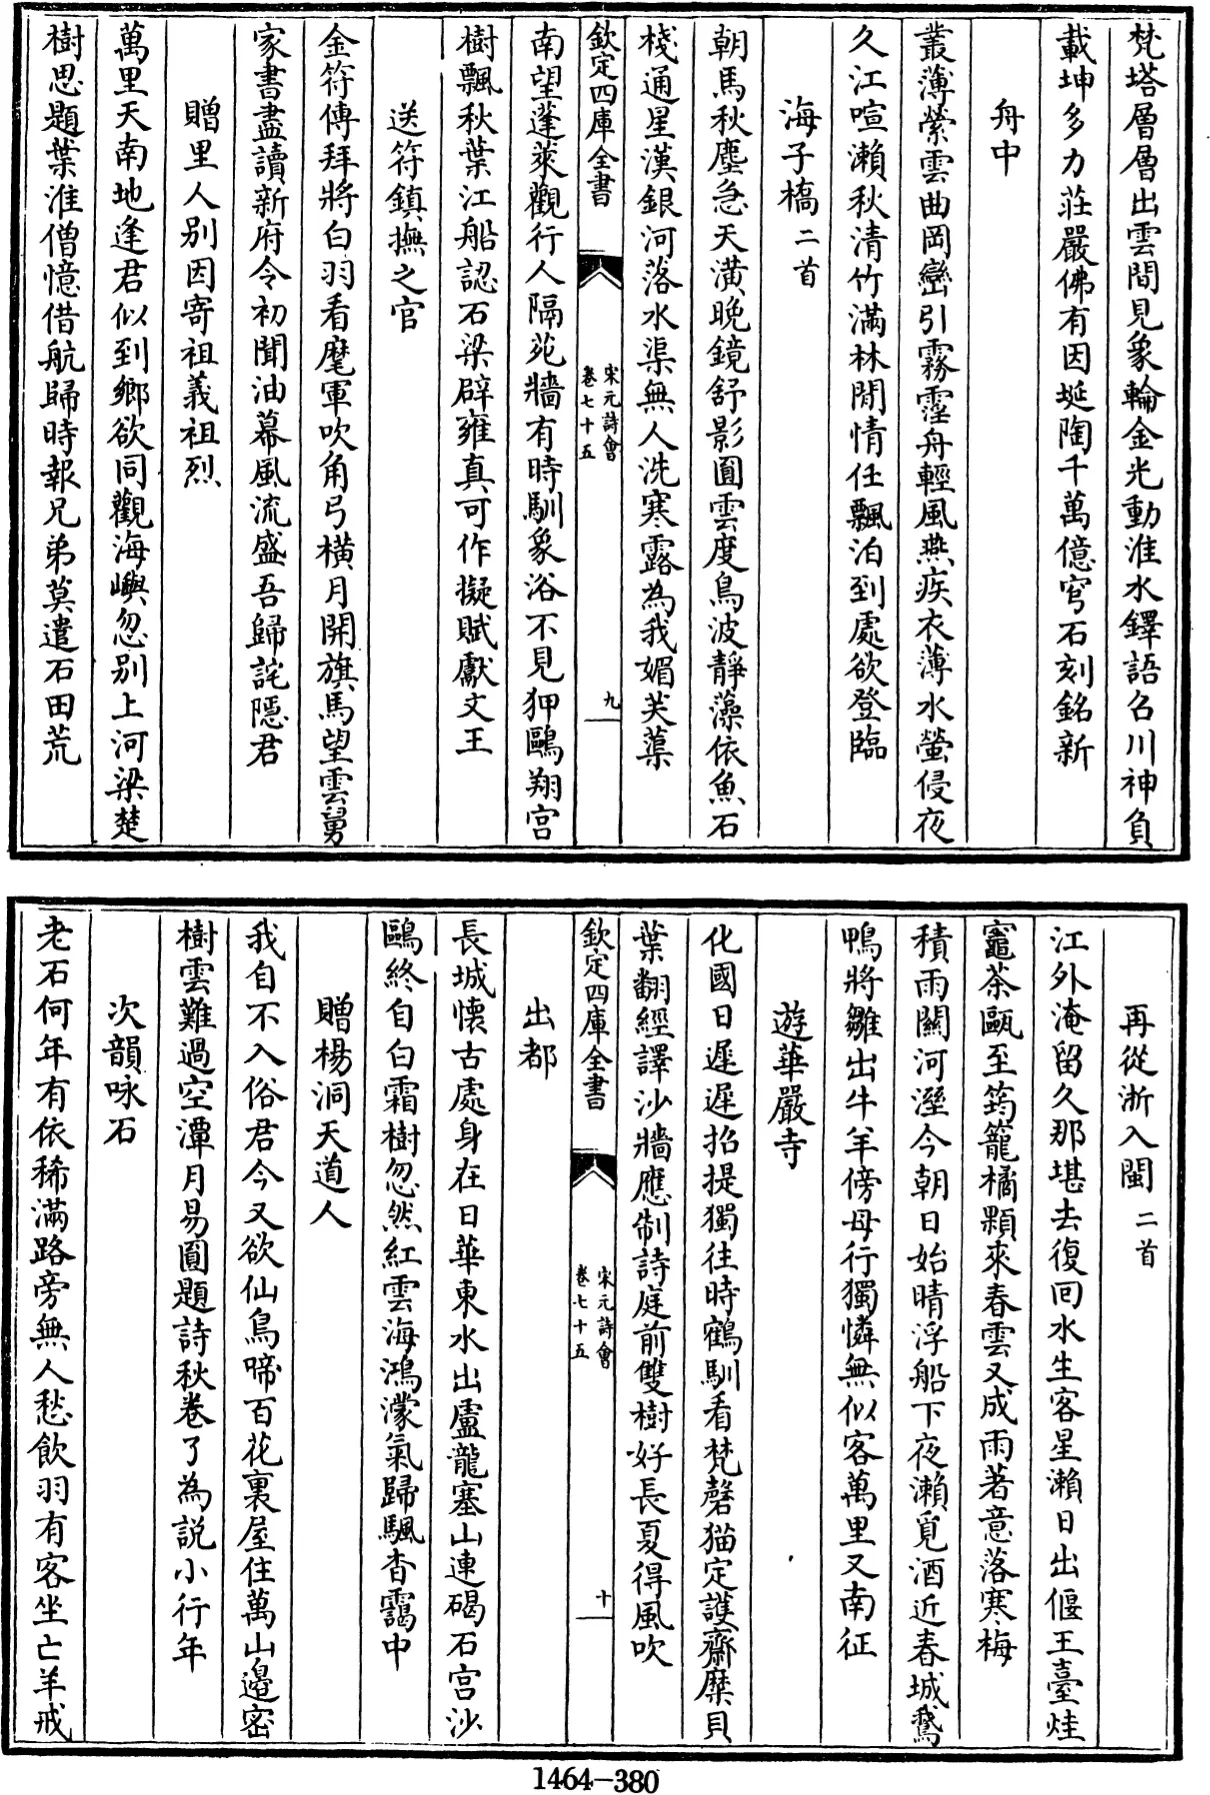 梵塔層層出雲間見象輪金光動淮水鐸語召川神負
載坤多力莊嚴佛有因埏陶千萬億穹石刻銘新
舟中
叢薄縈雲曲岡巒引霧霪舟輕風燕疾衣薄水螢侵夜
久江喧瀨秋清竹滿林閒情任飄泊到處欲登臨
海子橋二首
朝馬秋塵急天潢晚鏡舒影圓雲度鳥波靜藻依魚石
棧通星漢銀河落水渠無人洗寒露為我媚芙蕖
欽定四庫全書
宋元詩會
卷七十五
九
南望蓬萊觀行人隔苑牆有時馴象浴不見狎鷗翔宫
樹飄秋葉江船認石梁辟雍真可作擬賦獻文王
送符鎮撫之官
金符傳拜將白羽看麾軍吹角弓横月開旗馬望雲舅
家書盡讀新府令初聞油幕風流盛吾歸詫隱君
贈里人别因寄祖義祖烈
萬里天南地逢君似到鄉欲同觀海嶼忽别上河梁楚
樹思題葉淮僧憶借航歸時報兄弟莫遣石田荒
再從浙入閩二首
江外淹留久那堪去復回水生客星瀨日出偃王臺烓
竈茶甌至筠籠橘顆來春雲又成雨著意落寒梅
積雨關河溼今朝日始晴浮船下夜瀨覓酒近春城鵞
鴨將雛出牛羊傍母行獨憐無似客萬里又南征
遊華嚴寺
化國日遲遲招提獨往時鶴馴看梵磬猫定護齋糜貝
葉翻經譯沙牆應制詩庭前雙樹好長夏得風吹
欽定四庫全書
宋元詩會
卷七十五
十
出都
長城懷古處身在日華東水出盧龍塞山連碣石宫沙
鷗終自白霜樹忽然紅雲海鴻濛氣歸颿杳靄中
贈楊洞天道人
我自不入俗君今又欲仙鳥啼百花裏屋住萬山邉密
樹雲難過空潭月易圓題詩秋卷了為説小行年
次韻咏石
老石何年有依稀滿路旁無人愁飲羽有客坐亡羊戒
1464-380